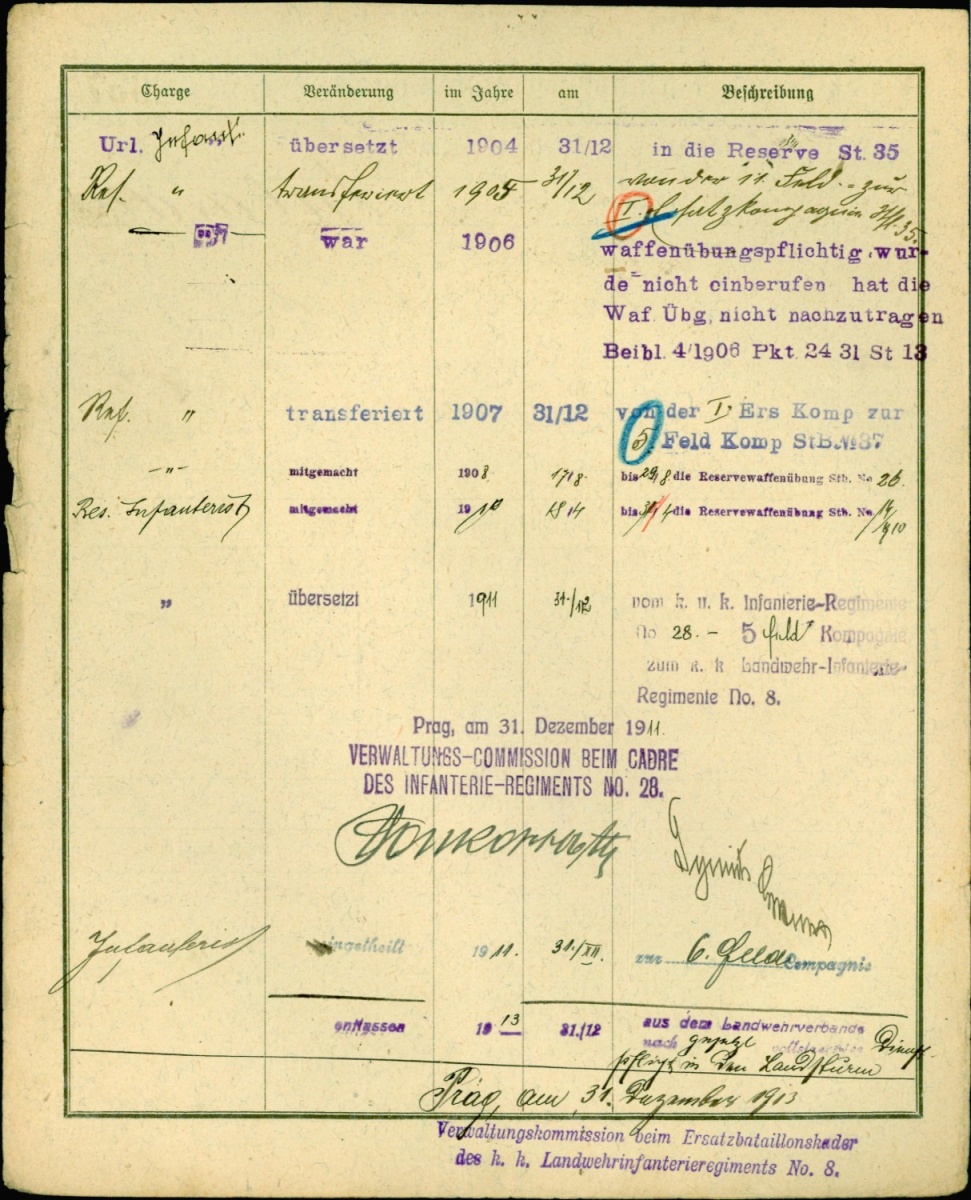 Charge Veränderung im Jahre am Beschreibung
Url. Infanst. übersetzt 1904 31/12 in die Reserve St. 35
Res. " transferiert 1905 31/12 von der 11. Feld - zur
I. Ersatzkompagnie 35.
war 1906 waffenübungspflichtig, wur-
de nicht einberufen hat die
Waf. Übg, nicht nachzutragen
Beibl. 4/1906 Pkt. 24 31 St 13
Res. " transferiert 1907 31/12 von der I Ers Komp zur
5. Feld Komp StB. № 37
-"- mitgemacht 1908 17/8. bis 29/8. die Reservewaffenübung Stb. No 26.
Res. Infanterist mitgemacht 1910 18/4 bis /4 die Reservewaffenübung Stb. No 14/1910
" übersetzt 1911 31./12 vom k. u. k. Infanterie-Regimente
No 28. - 5 Feld Kompagnie
zum k. k Landwehr-Infanterie-
Regimente No. 8.
Prag, am 31. Dezember 1911.
VERWALTUNGS-COMMISSION BEIM CADRE
DES INFANTERIE-REGIMENTS NO. 28.
Infanterist eingetheilt 1911. 31./XII. zur 6. Feld Compagnie
entlassen 1913 31./12 aus dem Landwehrverbande
nach gesetzl vollstreckter Dienst-
pflicht in den Landsturm
Prag, am 31. Dezember 1913
Verwaltungskommission beim Ersatzbataillonskader
des k. k. Landwehrinfanterieregiments No. 8.